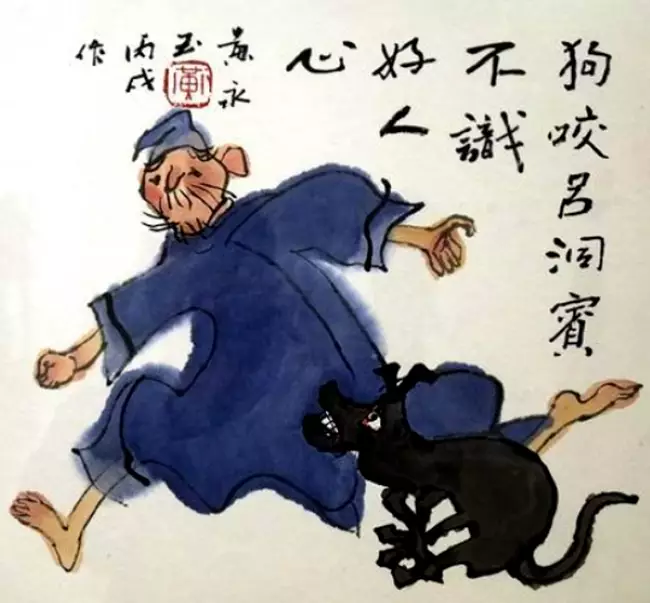 狗咬吕洞宾
不識
好人
心
黄永
玉
丙戌
作
黃